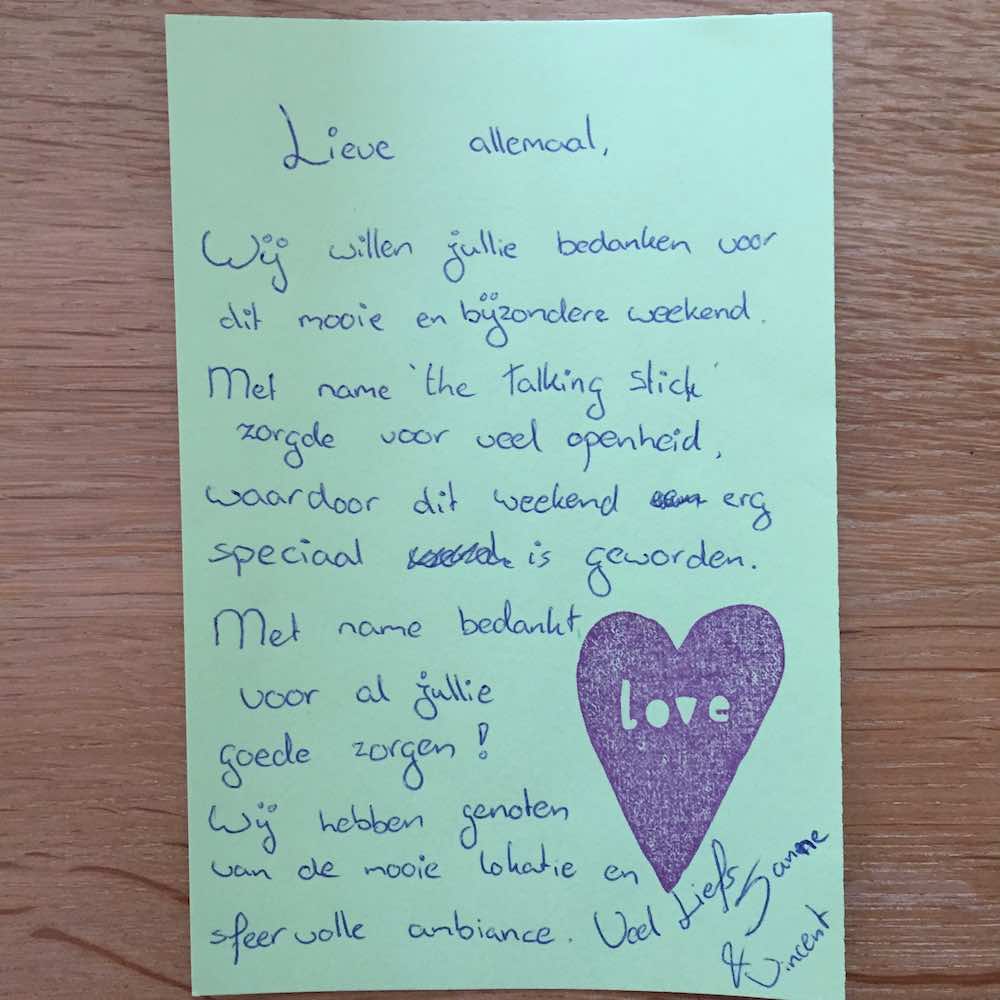 Lieve allemaal,
Wij willen jullie bedanken voor
dit mooie en bijzondere weekend.
Met name 'the talking stick'
zorgde voor veel openheid,
waardoor dit weekend erg
speciaal is geworden.
Met name bedankt
voor al jullie
goede zorgen!
love
Wij hebben genoten
van de mooie lokatie en
sfeervolle anbiance. Veel Liefs Sanne
& Vincent